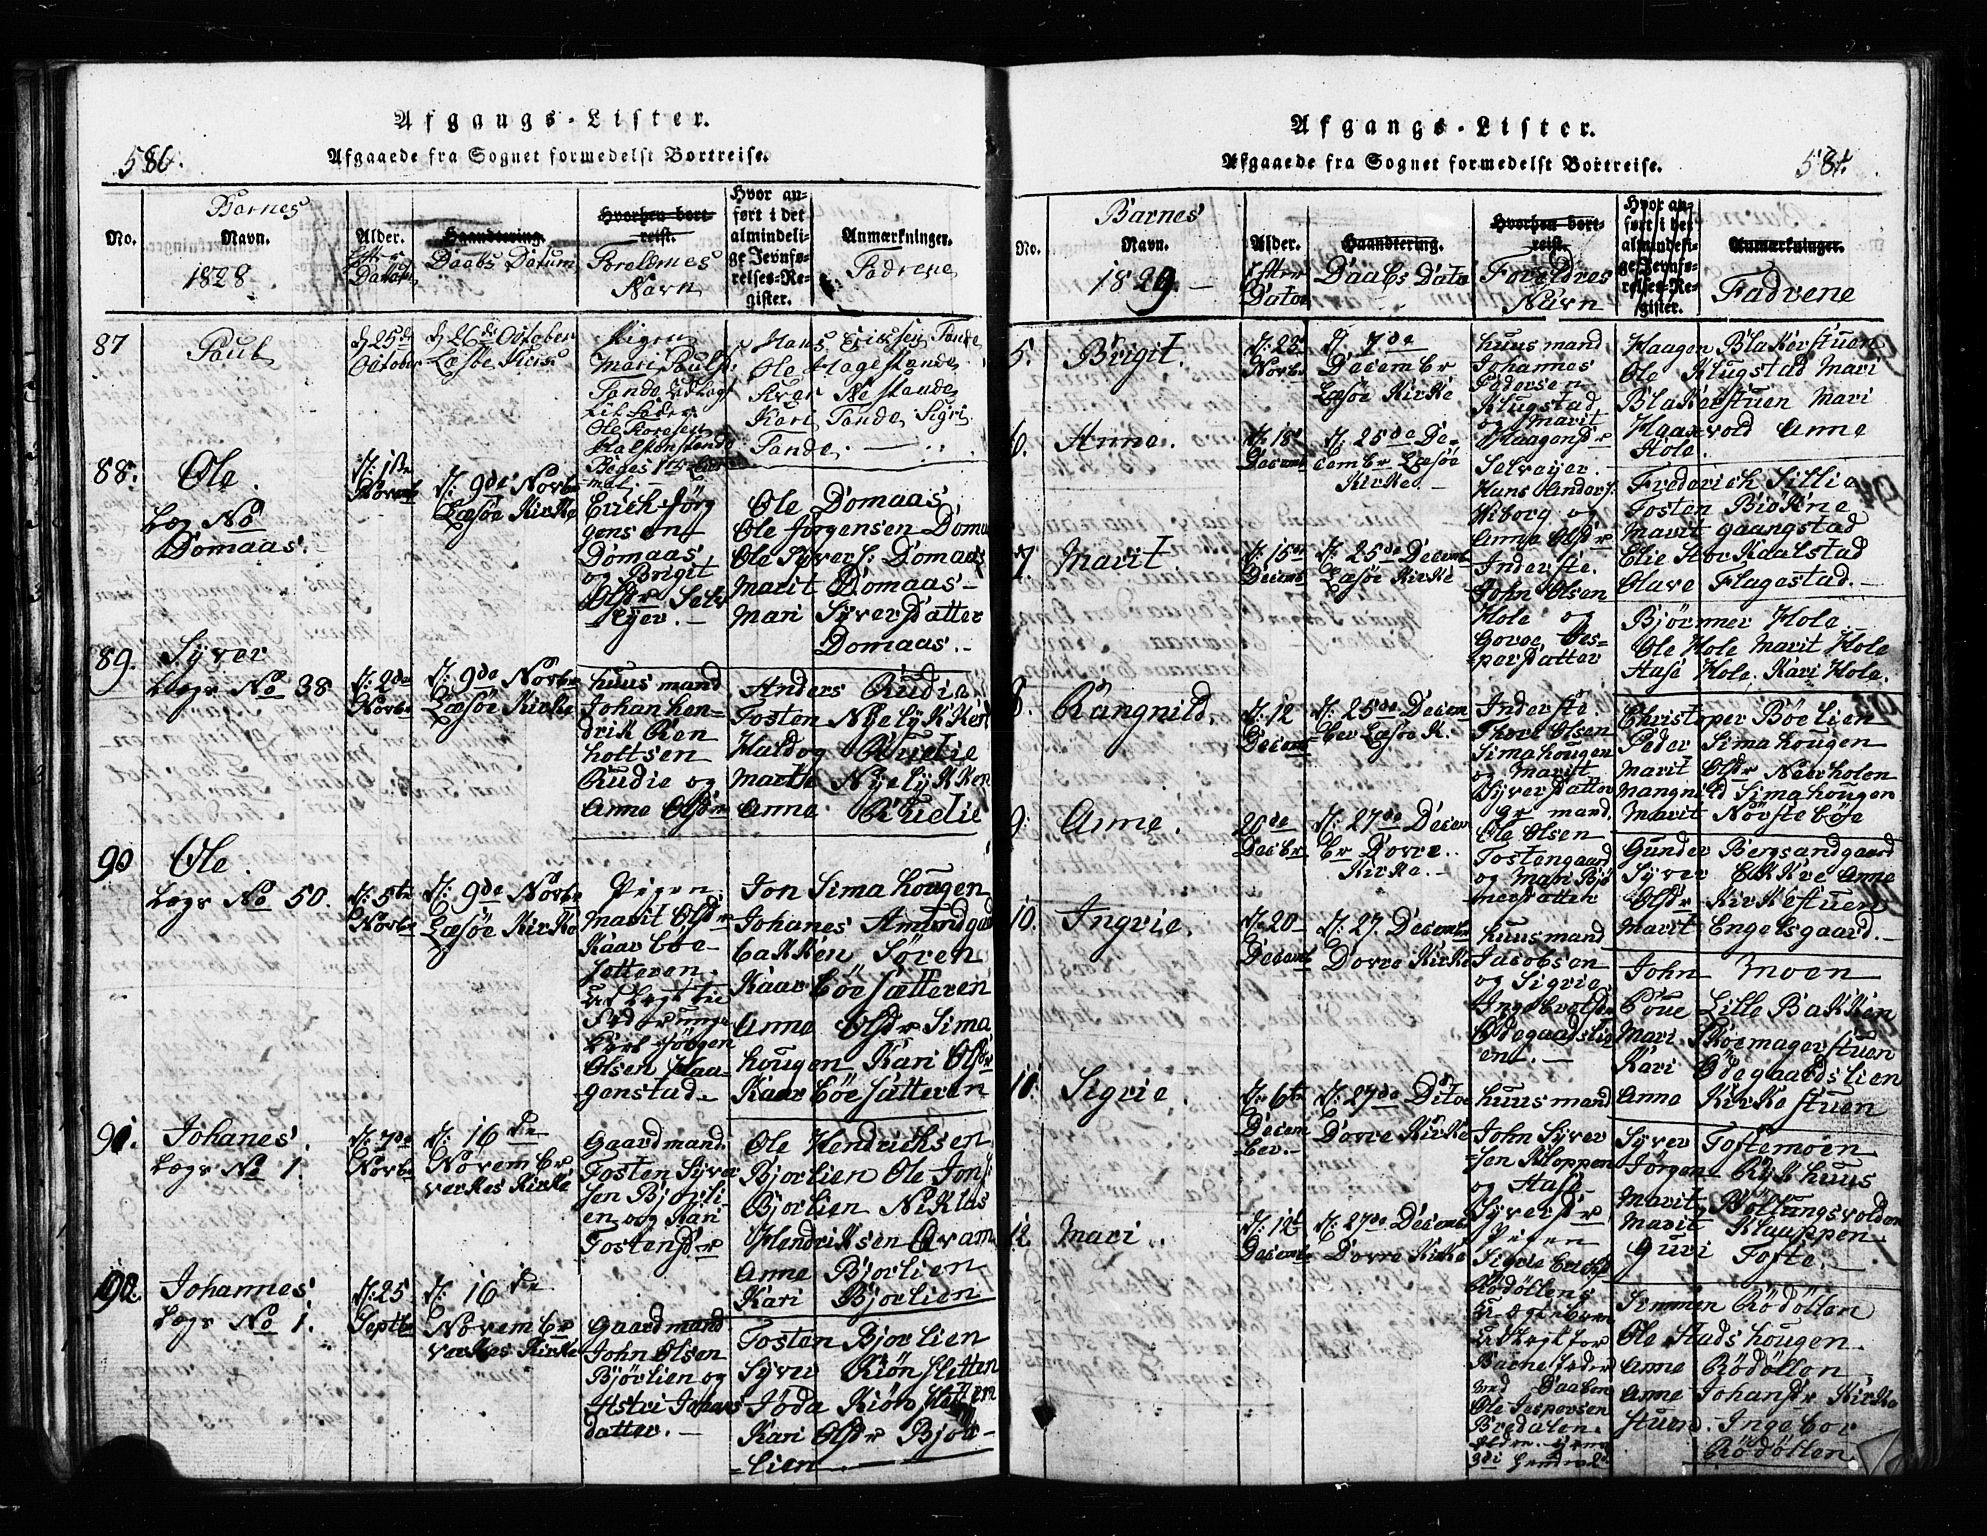 Afgangs-Lister.
586.
Afgaaede fra Sognet formedelst Bortreise.
No.
Barnes
Navn.
1828
Alder.
Datum
Haandtering.
Daabs Datum
Hvorhen bort-
reist.
Foreldrenes
Navn
Hvor an-
ført i det
almindeli-
ge Jevnfø-
relses-Re-
gister.
Anmærkninger.
Fadrene
87
Paul
d 25de
October
d 26de October
Læsøe Kirke
Pigen
Mari Pauls
Sande Udlagt
til Fader
Hans Ericksen Sande
Ole Hagestande
Siver
Kari Sande Sigri
Sande
88.
Ole.
Læg No
Domaas.
d: 1ste
Novemb
d: 9de Novbr
Læsøe Kirke
Erich Jörg
gensen
Domaas
og Brigit
Olsdr Selv
Eyer.
Ole Domaas
Ole Jørgensen Doma
Ole Syvers: Domaas
Marit Domaas
Mari Syverdatter
Domaas.
89.
Syver
Lægs No 38
d: 2de
Novbr
d: 9de Novbr
Læsøe Kirke
huusmand
Johan hen-
drik Ren
holttsen
Rudie og
Anne Olsdr
Anders Rudie
Tosten Nyelykken
Haldog Rudie
Marthe Nyelykken
Anne Rudie
90
Ole.
Lægs No 50.
d: 5te
Novbr
d: 9de Novbr
Læsøe Kirke
Pigen
Marit Olsdr
Kaarböe
Setteren.
udlagt til
Fader unge
Karl Jörgen
Olsen Haa-
genstad.
Jon Simahougen
Johanes Amundgaard
bakken Sören
Kaarböe sætteren
Anne Olsdr Sima
hougen Kari Olsdr
Kaarböe sætteren
91.
Johanes.
Lægs No 1.
d: 7de
Novbr
d: 16de
November
verkes Kirke
Gaardmand
Tosten Syver
sen Bjorli
en og Kari
Tostensdr
Ole Hendrichsen
Bjorlien Ole Jons:
Bjorlien Niklas
Hendriksen Qvam
Anne Bjorlien
Kari Bjorlien
92.
Johannes
Lægs No 1.
d: 25
Septbr
d: 16de
November
verkes Kirke
Gaardmand
John Olsen
Bjørlien og
Astri Johans
datter.
Tosten Bjorlien
Syver Kiönsletten
Jöda Kiönsletten
Kari Olsdr Bjor-
lien
Afgangs-Lister.
Afgaaede fra Sognet formedelst Bortreise.
No.
Barnes
Navn.
1829.
Alder.
Datoe
Haandtering.
Daabs Dato
Hvorhen bort-
reist.
Foreldres
Navn
Hvor an-
ført i det
almindeli-
ge Jevnfø-
relses-Re-
gister.
Anmærkninger.
Fadrene
5.
Brigit.
d. 23
Novbr
d. 7de
December
Læsøe Kirke
huusmand
Johannes
Pedersen
Klugstad
og Marit
Haagensdr
Haagen Blakerstuen
Ole Klugstad Mari
Blakerstuen Mari
Haavold Anne
Hole.
6.
Anne.
d: 18
Decemb
d. 25de De-
cember Læsøe
Kirke.
Selveyer.
Hans Anders:
Wiborg og
Anne Olsdr
Frederich Lillie
Tosten Biökne
Marit Gaangstad
Elie Storkaalstad
Olave Flagestad.
7.
Marit
d: 15de
Decemb
d. 25de Decemb
Læsøe Kirke
Inderste
John Olsen
Hole og
Goroe Jes-
perdatter
Bjørnner Hole
Ole Hole Marit Hole
Aase Hole. Kari Hole.
8.
Rangnild.
d: 12
Decemb
d: 25de Decem-
ber Læsøe K.
Inderste
Thore Olsen
Simahougen
og Marit
Syverdatter
Christoper Böelien
Peder Simahougen
Marit Olsdr Nörholen
Mangnild Simahougen
Marit Nörsteböe
9.
Anne.
20de
Decbr
d: 27de Decem
br Dovre
Kirke.
grmand
Ole Olsen
Tostengaard
og Mari Bjö
nersdatter
Gunder Bergsandgaard
Syver Bakke Anne
Olsdr Kirkestuen
Marit Engelsgaard.
10.
Ingrie.
d: 20
Decemb
d: 27. Decembr
Dovre Kirke
huusmand
Jacobsen
og Sigrie
Ödegaardsli
en.
John Moen
Poue Lille Bakken
Mari Skoemagerstuen
Kari Ödegaardslien
Anne Kirkestuen
11.
Sigrie.
d: 6te
Decem
ber.
d: 27de Ditoe
Dovre Kirke
huusmand
John Syver
sen Kloppen
og Aase
Syversdr
Syver Toftemoen
Jörgen Rükhuus
Marit Böttangsvolden
Marit Klauppen.
Guri Tofte.
12
Mari.
d: 12te
Decemb
d: 27de Decemb
Dovre Kirke
Pigen
Rödöllens
udlagt for
Barne fader
ved Daaben
Ole Jespersen
Bredalen.
Simmen Rödöllen
Ole Stadshougen
Anne Rödöllen
Anne Johansdr Kirke
stuen. Ingebor
Rödöllen